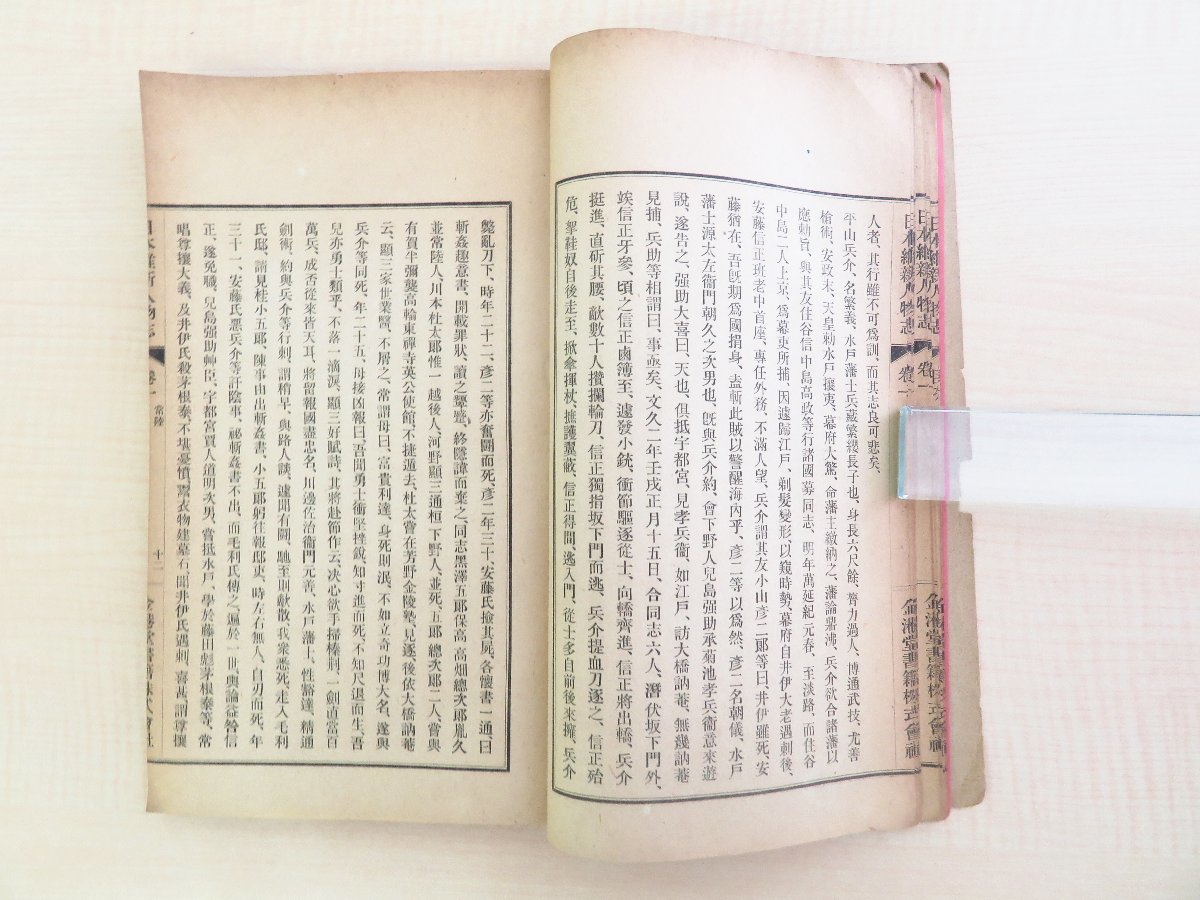 人者、其行雖不可爲訓、而其志良可悲矣、
平山兵介、名繁義、水戶藩士兵藏繁綴長子也、身長六尺餘、膂力過人、博通武技、尤善
槍術、安政末、天皇勅水戶攘夷、幕府大驚、命藩主繳納之、藩論鼎沸、兵介欲合諸藩以
應勅旨、與其友住谷信、中島高政等行諸國、募同志、明年萬延紀元春、至淡路、而住谷
中島二人上京、爲幕吏所捕、因遽歸江戶、剃髮變形、以窺時勢、幕府自井伊大老遇刺後、
安藤信正班老中首座、專任外務、不滿人望、兵介謂其友小山彥二郞等曰、井伊雖死、安
藤猶在、吾旣期爲國捐身、盍斬此賊以警醒海內乎、彥二等以爲然、彥二名朝儀、水戶
藩士源太左衞門朝久之次男也、旣與兵介約、會下野人兒島强助承菊池孝兵衞意來遊
說、遂告之、强助大喜曰、天也、俱抵宇都宮、見孝兵衞、如江戶、訪大橋訥菴、無幾訥菴
見捕、兵助等相謂曰、事亟矣、文久二年壬戌正月十五日、合同志六人、潛伏坂下門外、
竢信正牙參、頃之信正鹵簿至、遽發小銃、衝節驅逐從士、向轎齊進、信正將出轎、兵介
挺進、直斫其腰、敵數十人攢攔輪刀、信正獨指坂下門而逃、兵介提血刀逐之、信正殆
危、挐鞋奴自後走至、掀傘揮杖、摭護翼蔽、信正得間、逃入門、從士多自前後來擁、兵介
斃亂刀下、時年二十二、彥二等亦奮鬪而死、彥二年三十、安藤氏撿其屍、各懷書一通、曰
斬姦趣意書、開載罪狀、讀之顰蹙、終隱諱而棄之、同志黑澤五郞保高、高畑總次郞胤久
並常陸人、川本杜太郞惟一、越後人、河野顯三通桓、下野人、並死、五郞總次郞二人、嘗與
有賀半彌襲高輪東禪寺英公使館、不捷遁去、杜太嘗在芳野金陵塾、見逐後依大橋訥菴
云、顯三家世業醫、不屑之、常謂母曰、富貴利達、身死則泯、不如立奇功博大名、遂與
兵介等同死、年二十五、母接凶報曰、吾聞勇士衝堅挫銳、知寸進而死、不知尺退而生、吾
兒亦勇士類乎、不落一滴淚、顯三好賦詩、其將赴節作云、决心欲手掃榛荆、一劍直當百
萬兵、成否從來皆天耳、將留報國盡忠名、川邊佐治衞門元善、水戶藩士、性豁達、精通
劍術、約與兵介等行刺、謂稍早、與路人談、遽聞有鬪、馳至則敵散、我衆悉死、走入毛利
氏邸、請見桂小五郞、陳事由出斬姦書、小五郞躬往報邸吏、時左右無人、自刃而死、年
三十一、安藤氏惡兵介等訐陰事、祕斬姦書不出、而毛利氏傳之、遍於一世、輿論益咎信
正、遂免職、兒島强助艸臣、宇都宮賈人道明次男、嘗抵水戶、學於藤田彪茅根泰等、常
唱尊攘大義、及井伊氏殺茅根泰、不堪憂憤、鬻衣物建墓石、聞井伊氏遇刺、喜甚、謂尊攘
日本維新人物志 卷一 常陸 十二
日本維新人物志 卷一 金港堂書籍株式會社